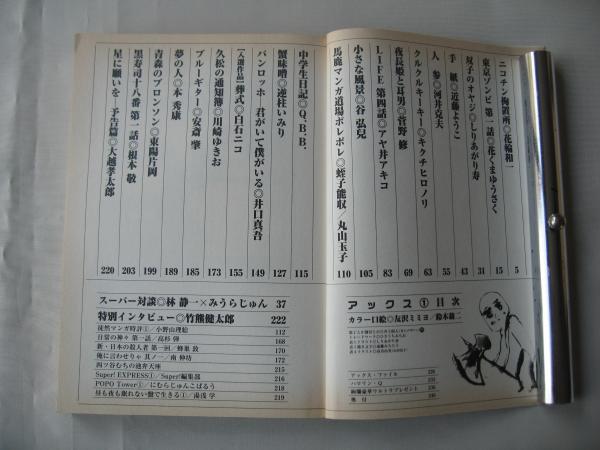 ニコチン拘置所◎花輪和一 5
東京ゾンビ 第一話◎花くまゆうさく 15
双子のオヤジ◎しりあがり寿 31
手 紙◎近藤ようこ 43
人 参◎河井克夫 55
クルクルキーキー◎キクチヒロノリ 63
夜長姫と耳男◎菅野 修 69
LIFE 第四話◎アヤ井アキコ 83
小さな風景◎谷 弘兒 105
馬鹿マンガ道場ポレポレ◎蛭子能収／丸山玉子 110
中学生日記◎Q.B.B. 115
蟹味噌◎逆柱いみり 127
バンロッホ 君がいて僕がいる◎井口真吾 149
【入選作品】葬式◎白石ニコ 155
久松の通知簿◎川崎ゆきお 173
ブルーギター◎安斎 肇 185
夢の人◎本 秀康 189
青森のブロンソン◎東陽片岡 199
黒寿司十八番 第一話◎根本 敬 203
星に願いを 予告篇◎大越孝太郎 220
アックス①目次
カラー口絵◎友沢ミミヨ／鈴木翁二
アックス・ファイル
ハマリン・Q
スーパー対談◎林 静一×みうらじゅん 37
特別インタビュー◎竹熊健太郎 222
徒然マンガ時評①／小野山理絵 112
日常の神々 第一話／高杉 弾 168
新・日本の殺人者 第一回／蜂巣 敦 170
俺に言わせりゃ 其ノ一／南 伸坊 172
四ツ谷むちの速弁天座 215
Super! EXPRESS①／Super!編集部 216
POPO Tower①／にむらじゅんこぱるう 218
昼も夜も眠れない盤で生きる①／湯浅 学 219